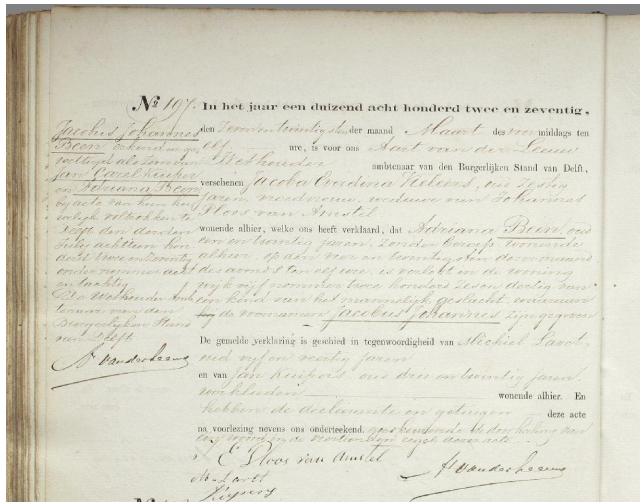 No 197. In het jaar een duizend acht honderd twee en zeventig,
den Zevenentwintigsten der maand Maart des voor middags ten
elf ure, is voor ons Aart van der Leeuw
Wethouder ambtenaar van den Burgerlijken Stand van Delft,
verschenen Jacoba oud Zestig
jaren, vroedvrouw, weduwe van Johannes
Ploos van Amstel
wonende alhier, welke ons heeft verklaard, dat Adriana Been, oud
een en twintig jaren, zonder beroep, wonende
alhier, op den vier en twintigsten dezer maand
des avonds ten elf ure, is verlost in de woning
wijk vijf nommer twee honderd zeven dertig van
een kind van het mannelijk geslacht, waaraan
de voornamen Jacobus Johannes zijn gegeven
De gemelde verklaring is geschied in tegenwoordigheid van Michiel
oud vijf en veertig jaren
en van Jan Kuipers, oud drie en twintig jaren,
wonende alhier. En
hebben de declarante en getuigen deze acte
na voorlezing nevens ons onderteekend.
E Ploos van Amstel
A vanderLeeuw
Jacobus Johannes
Been erkend en ge
wettigd als zoon van
Jan Carel Kuiper
en Adriana Been
bij acte van hun huw
lijk voltrokken te
Delft den derden
Julij achttien hon
derd twee en zeventig
onder nommer acht
en tachtig
De Wethouder Amb
tenaar van den
Burgerlijken Stand
van Delft
A vanderLeeuw